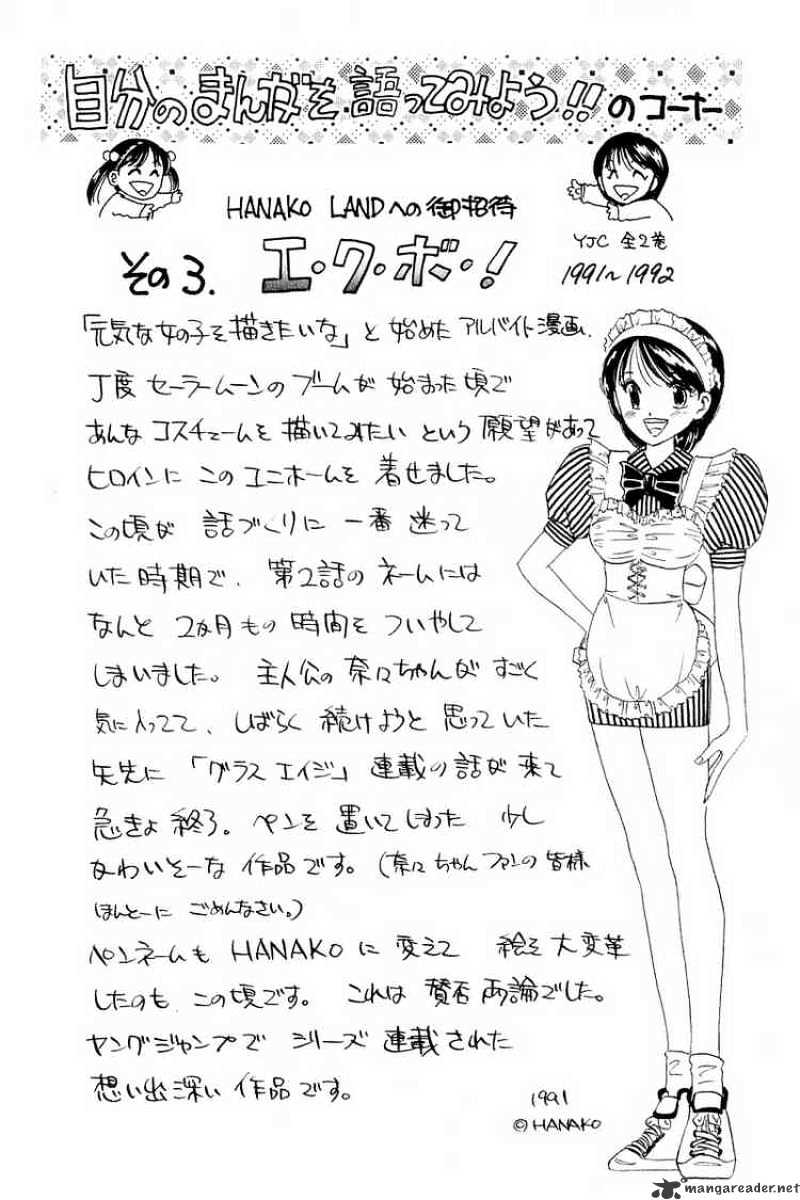 自分のまんがを語ってみよう!!のコーナー
HANAKO LANDへの御招待
その3.
エ・ク・ボ・!
YJC 全2巻
1991~1992
「元気な女の子を描きたいな」と始めたアルバイト漫画、
丁度セーラームーンのブームが始まった頃で
あんなコスチュームを描いてみたいという願望があって
ヒロインにこのユニホームを着せました。
この頃が話づくりに一番迷って
いた時期で、第2話のネームには
なんと2ヵ月もの時間をついやして
しまいました。主人公の奈々ちゃんがすごく
気に入ってて、しばらく続けようと思っていた
矢先に「グラスエイジ」連載の話が来て
急きょ終了。ペンを置いてしまった少し
かわいそーな作品です。(奈々ちゃんファンの皆様
ほんとーにごめんなさい。)
ペンネームもHANAKOに変えて絵を大変革
したのもこの頃です。これは賛否両論でした。
ヤングジャンプでシリーズ連載された
想い出深い作品です。
1991
©HANAKO
mangareader.net